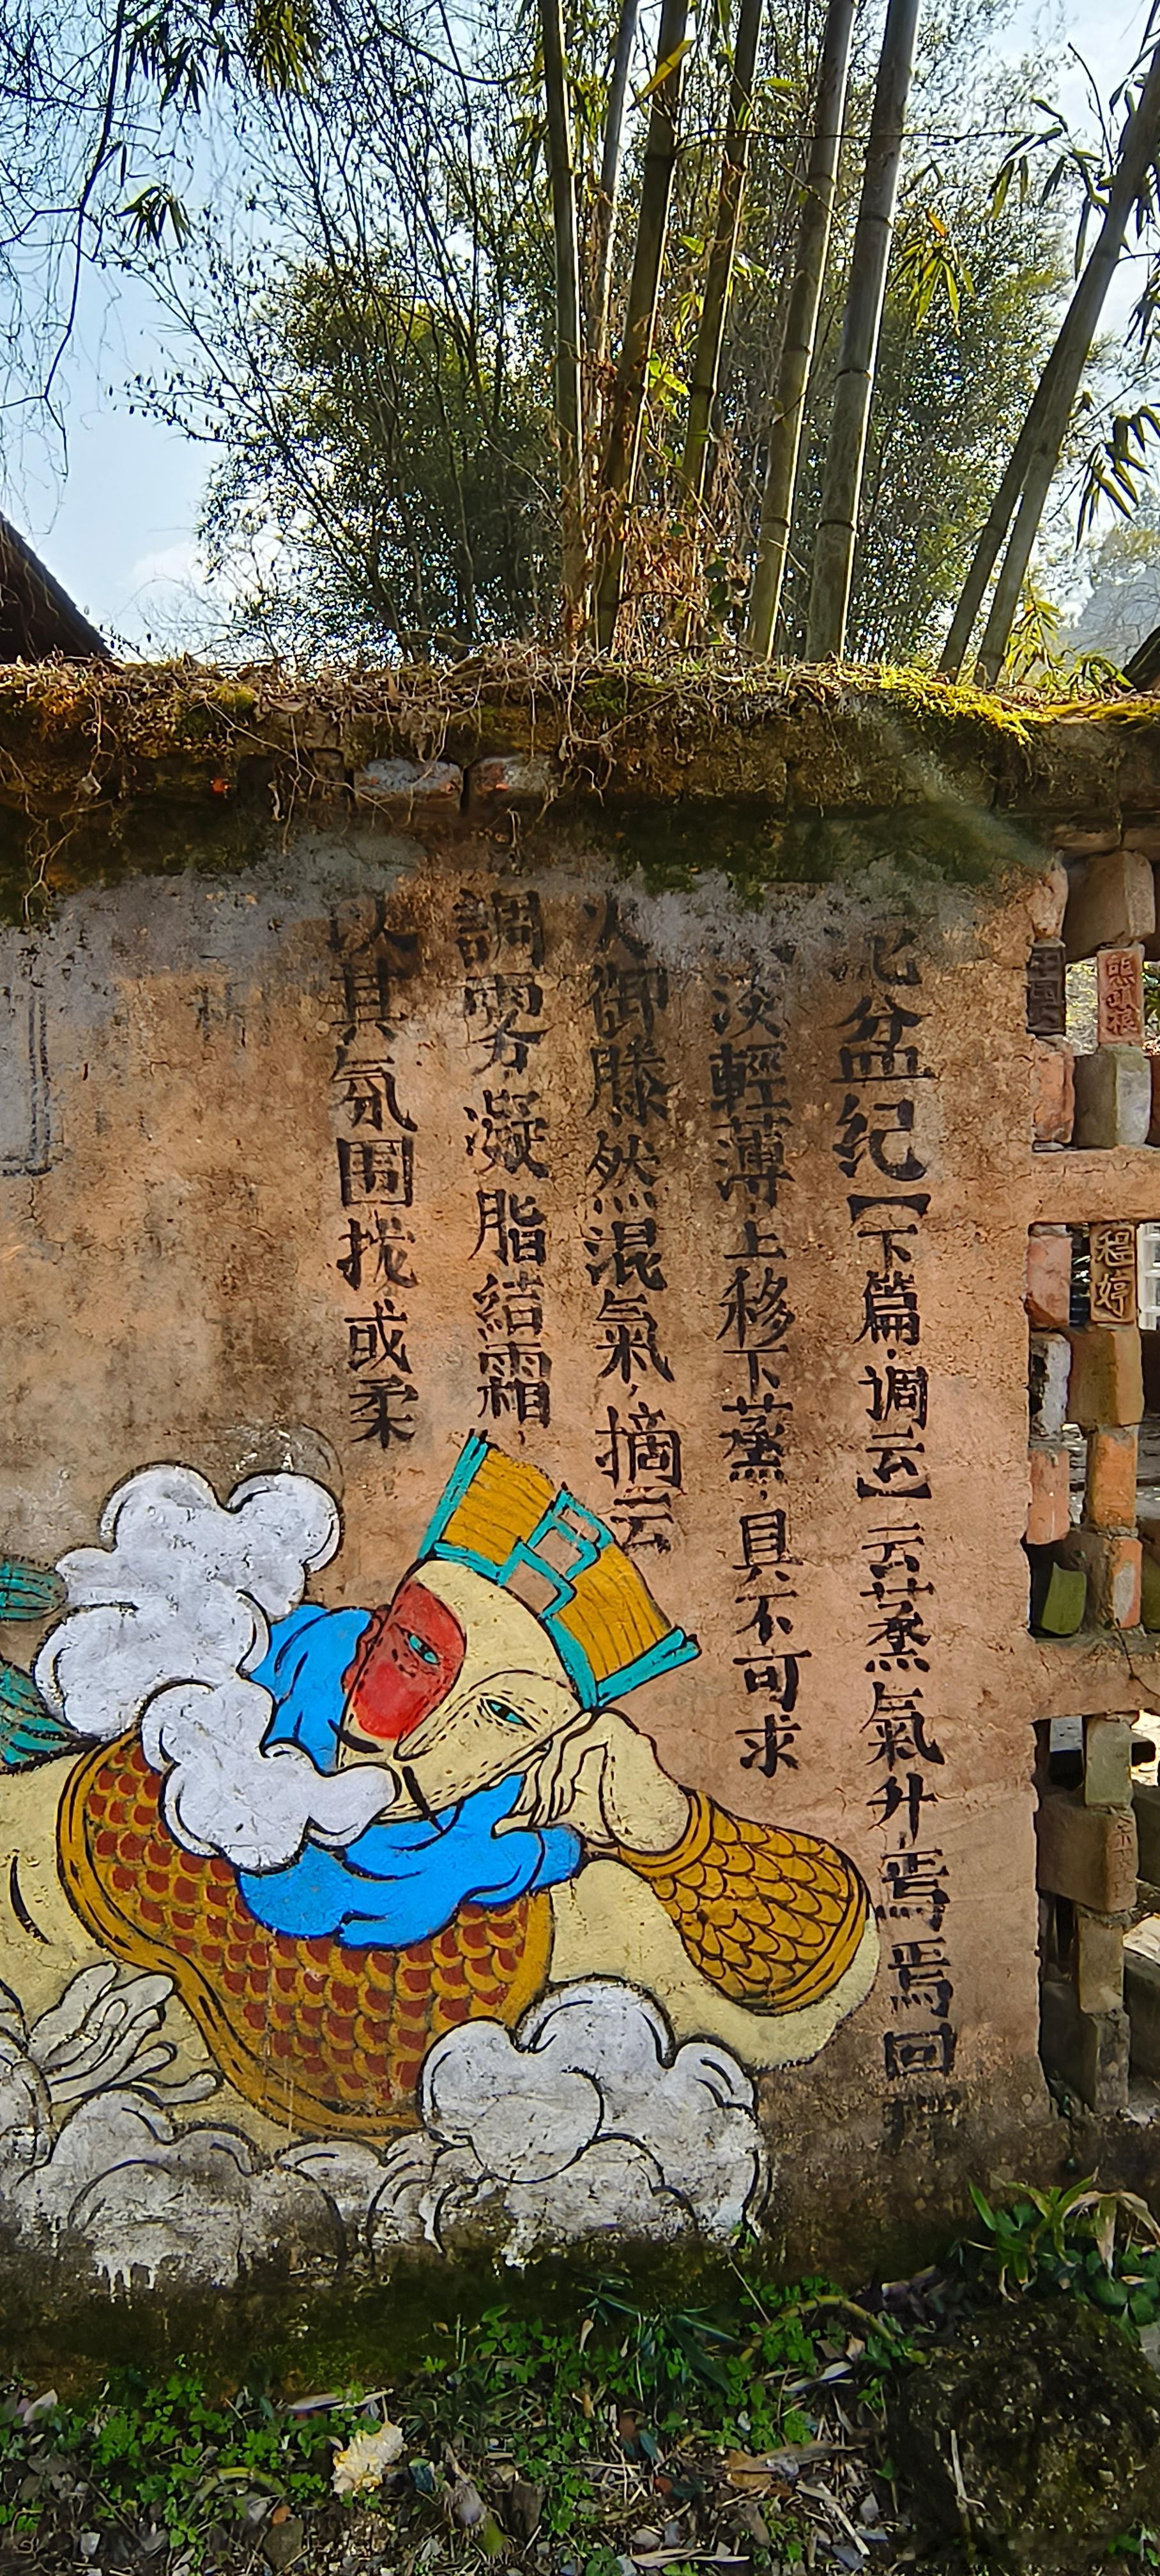 盆纪【下篇·调云】云蒸氣升焉焉回
淡輕薄·上移下蒸·具不可求
火御滕然混氣，摘云
調雰凝脂結霜，
以其氛围找或柔
熊頭根
程婷